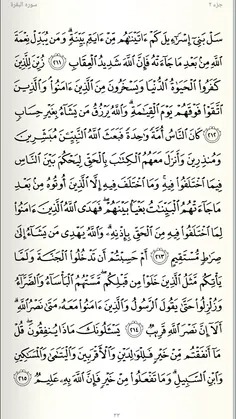 جزء ٢ سورة البقرة
سَلْ بَنِىٓ إِسْرَٰٓءِيلَ كَمْ ءَاتَيْنَٰهُم مِّنْ ءَايَةٍۭ بَيِّنَةٍۢ ۗ وَمَن يُبَدِّلْ نِعْمَةَ
ٱللَّهِ مِنۢ بَعْدِ مَا جَآءَتْهُ فَإِنَّ ٱللَّهَ شَدِيدُ ٱلْعِقَابِ ٢١١ زُيِّنَ لِلَّذِينَ
كَفَرُوا۟ ٱلْحَيَوٰةُ ٱلدُّنْيَا وَيَسْخَرُونَ مِنَ ٱلَّذِينَ ءَامَنُوا۟ ۘ وَٱلَّذِينَ
ٱتَّقَوْا۟ فَوْقَهُمْ يَوْمَ ٱلْقِيَٰمَةِ ۗ وَٱللَّهُ يَرْزُقُ مَن يَشَآءُ بِغَيْرِ حِسَابٍۢ
٢١٢ كَانَ ٱلنَّاسُ أُمَّةًۭ وَٰحِدَةًۭ فَبَعَثَ ٱللَّهُ ٱلنَّبِيِّـۧنَ مُبَشِّرِينَ
وَمُنذِرِينَ وَأَنزَلَ مَعَهُمُ ٱلْكِتَٰبَ بِٱلْحَقِّ لِيَحْكُمَ بَيْنَ ٱلنَّاسِ
فِيمَا ٱخْتَلَفُوا۟ فِيهِ ۚ وَمَا ٱخْتَلَفَ فِيهِ إِلَّا ٱلَّذِينَ أُوتُوهُ مِنۢ بَعْدِ
مَا جَآءَتْهُمُ ٱلْبَيِّنَٰتُ بَغْيًۢا بَيْنَهُمْ ۖ فَهَدَى ٱللَّهُ ٱلَّذِينَ ءَامَنُوا۟
لِمَا ٱخْتَلَفُوا۟ فِيهِ مِنَ ٱلْحَقِّ بِإِذْنِهِۦ ۗ وَٱللَّهُ يَهْدِى مَن يَشَآءُ إِلَىٰ
صِرَٰطٍۢ مُّسْتَقِيمٍ ٢١٣ أَمْ حَسِبْتُمْ أَن تَدْخُلُوا۟ ٱلْجَنَّةَ وَلَمَّا
يَأْتِكُم مَّثَلُ ٱلَّذِينَ خَلَوْا۟ مِن قَبْلِكُم ۖ مَّسَّتْهُمُ ٱلْبَأْسَآءُ وَٱلضَّرَّآءُ
وَزُلْزِلُوا۟ حَتَّىٰ يَقُولَ ٱلرَّسُولُ وَٱلَّذِينَ ءَامَنُوا۟ مَعَهُۥ مَتَىٰ نَصْرُ ٱللَّهِ ۗ
أَلَآ إِنَّ نَصْرَ ٱللَّهِ قَرِيبٌۭ ٢١٤ يَسْـَٔلُونَكَ مَاذَا يُنفِقُونَ ۖ قُلْ
مَآ أَنفَقْتُم مِّنْ خَيْرٍۢ فَلِلْوَٰلِدَيْنِ وَٱلْأَقْرَبِينَ وَٱلْيَتَٰمَىٰ وَٱلْمَسَٰكِينِ
وَٱبْنِ ٱلسَّبِيلِ ۗ وَمَا تَفْعَلُوا۟ مِنْ خَيْرٍۢ فَإِنَّ ٱللَّهَ بِهِۦ عَلِيمٌۭ ٢١٥
٣٣